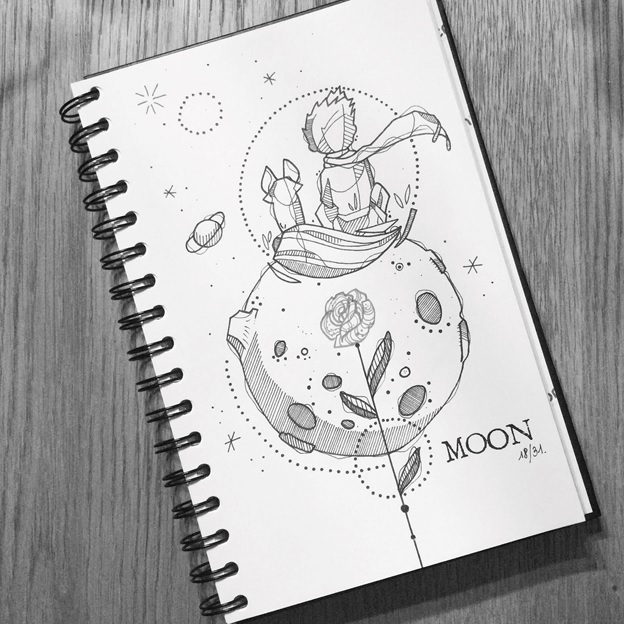 MOON
18/31.